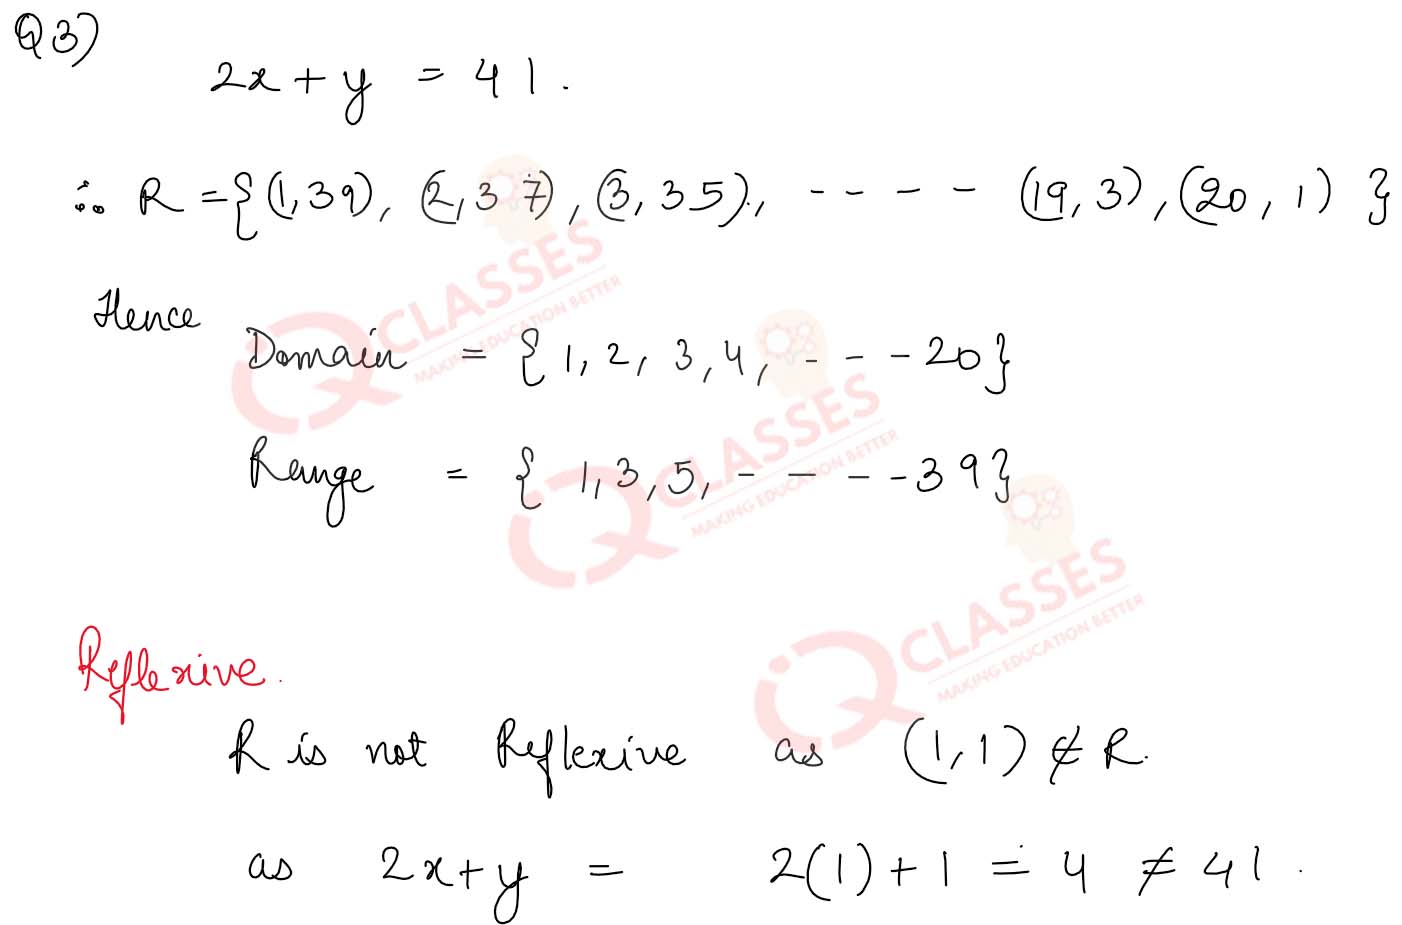 Q3)
2x + y = 41.
∴ R = {(1,39), (2,37), (3,35), - - - - (19,3), (20,1) }
Hence
Domain = { 1, 2, 3, 4, - - - 20}
Range = { 1, 3, 5, - - - - 39}
Reflexive.
R is not Reflexive as (1,1) ∉ R.
as 2x+y = 2(1) + 1 = 4 ≠ 41.
iQ CLASSES
MAKING EDUCATION BETTER
iQ CLASSES
MAKING EDUCATION BETTER
iQ CLASSES
MAKING EDUCATION BETTER